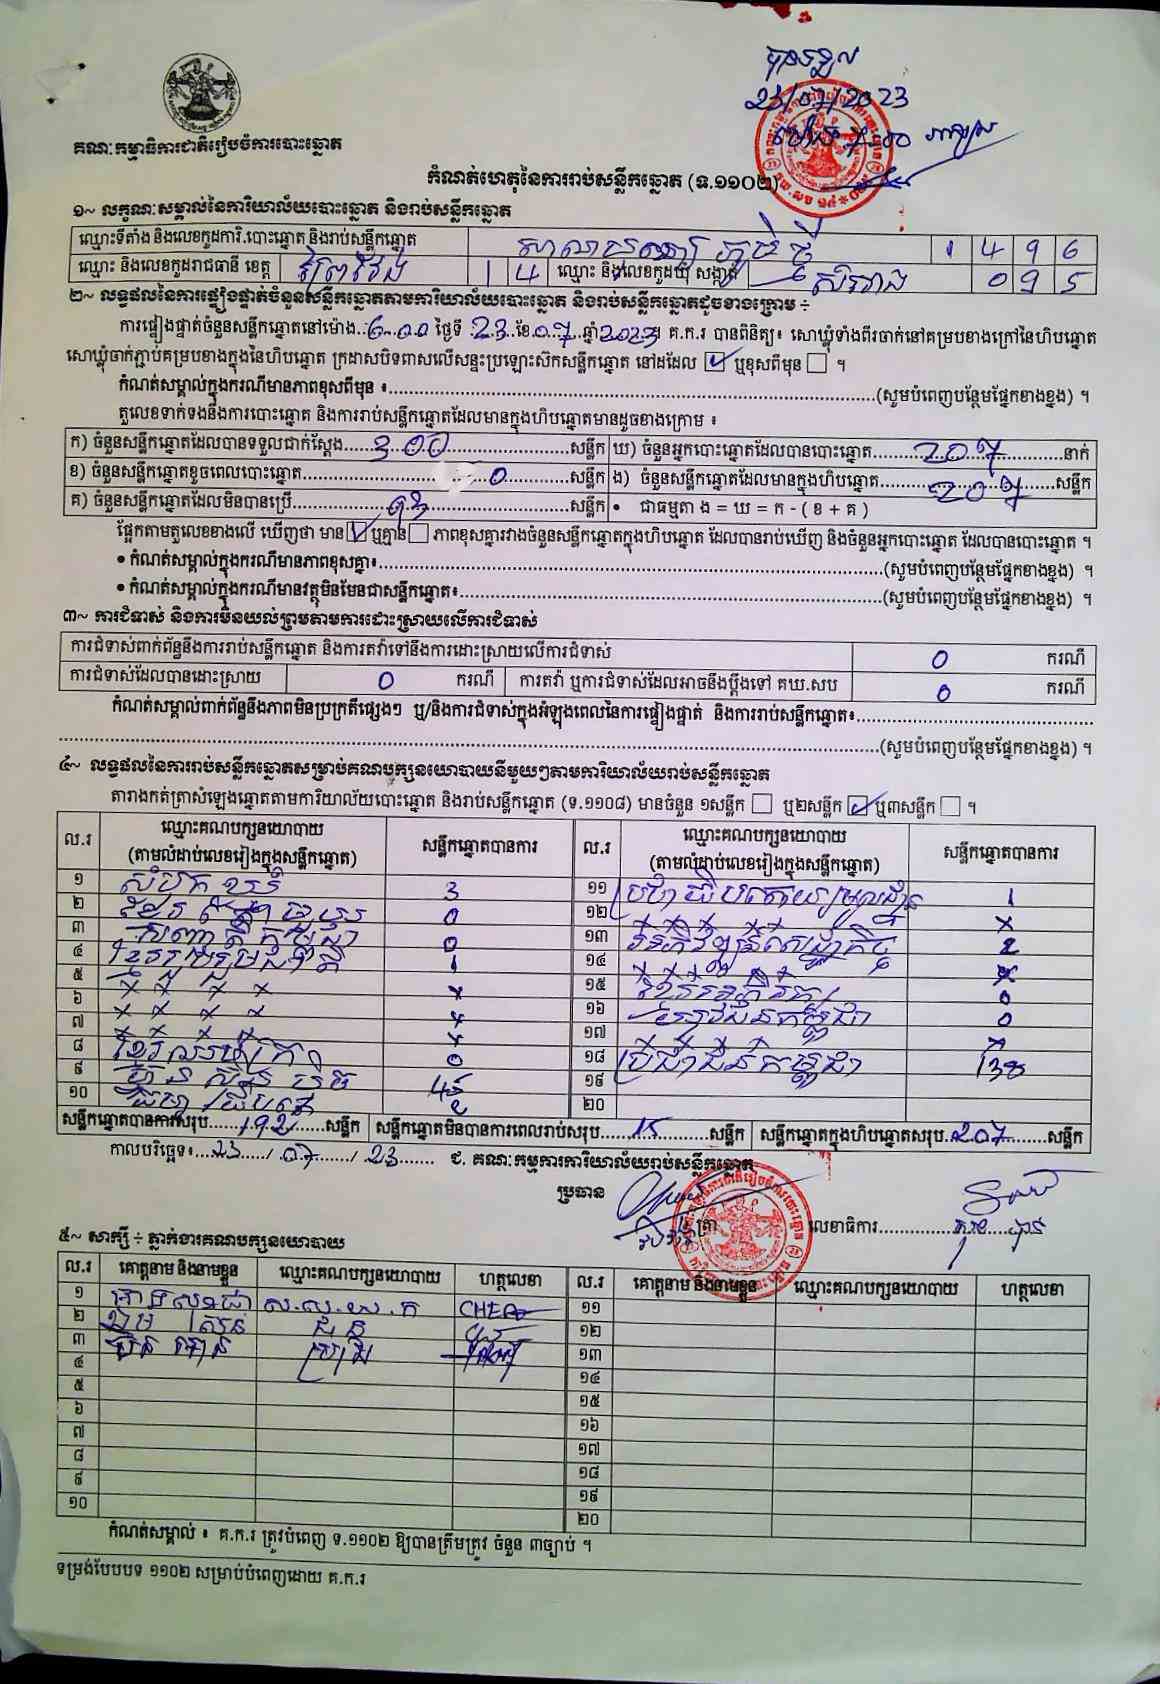 គណៈកម្មាធិការជាតិរៀបចំការបោះឆ្នោត
23/07/2023
កំណត់ហេតុនៃការរាប់សន្លឹកឆ្នោត (ទ.១១០២)
១~ លក្ខណៈសម្គាល់នៃការិយាល័យបោះឆ្នោត និងរាប់សន្លឹកឆ្នោត
ឈ្មោះទីតាំង និងលេខកូដការិ.បោះឆ្នោត និងរាប់សន្លឹកឆ្នោត 1 4 9 6
ឈ្មោះ និងលេខកូដរាជធានី ខេត្ត ព្រៃវែង 1 4 ឈ្មោះ និងលេខកូដឃុំ សង្កាត់ 0 9 5
២~ លទ្ធផលនៃការផ្ទៀងផ្ទាត់ចំនួនសន្លឹកឆ្នោតតាមការិយាល័យបោះឆ្នោត និងរាប់សន្លឹកឆ្នោតដូចខាងក្រោម ÷
ការផ្ទៀងផ្ទាត់ចំនួនសន្លឹកឆ្នោតនៅម៉ោង..6.00 ថ្ងៃទី 23 ខែ 07 ឆ្នាំ 2023 គ.ក.រ បានពិនិត្យ៖ សោឃ្លុំទាំងពីរចាក់នៅគម្របខាងក្រៅនៃហិបឆ្នោត
សោឃ្លុំចាក់ភ្ជាប់គម្របខាងក្នុងនៃហិបឆ្នោត ក្រដាសបិទពាសលើសន្ទះប្រឡោះស៊កសន្លឹកឆ្នោត នៅដដែល ☑ ឬខុសពីមុន ☐ ។
កំណត់សម្គាល់ក្នុងករណីមានភាពខុសពីមុន ៖ (សូមបំពេញបន្ថែមផ្នែកខាងខ្នង) ។
តួលេខទាក់ទងនឹងការបោះឆ្នោត និងការរាប់សន្លឹកឆ្នោតដែលមានក្នុងហិបឆ្នោតមានដូចខាងក្រោម ៖
ក) ចំនួនសន្លឹកឆ្នោតដែលបានទទួលជាក់ស្តែង 300 សន្លឹក ឃ) ចំនួនអ្នកបោះឆ្នោតដែលបានបោះឆ្នោត 207 នាក់
ខ) ចំនួនសន្លឹកឆ្នោតខូចពេលបោះឆ្នោត 0 សន្លឹក ង) ចំនួនសន្លឹកឆ្នោតដែលមានក្នុងហិបឆ្នោត 207 សន្លឹក
គ) ចំនួនសន្លឹកឆ្នោតដែលមិនបានប្រើ 93 សន្លឹក • ជាធម្មតា ង = ឃ = ក - ( ខ + គ )
ផ្អែកតាមតួលេខខាងលើ ឃើញថា មាន ☑ ឬគ្មាន ☐ ភាពខុសគ្នារវាងចំនួនសន្លឹកឆ្នោតក្នុងហិបឆ្នោត ដែលបានរាប់ឃើញ និងចំនួនអ្នកបោះឆ្នោត ដែលបានបោះឆ្នោត ។
• កំណត់សម្គាល់ក្នុងករណីមានភាពខុសគ្នា៖ (សូមបំពេញបន្ថែមផ្នែកខាងខ្នង) ។
• កំណត់សម្គាល់ក្នុងករណីមានវត្ថុមិនមែនជាសន្លឹកឆ្នោត៖ (សូមបំពេញបន្ថែមផ្នែកខាងខ្នង) ។
៣~ ការជំទាស់ និងការមិនយល់ព្រមតាមការដោះស្រាយលើការជំទាស់
ការជំទាស់ពាក់ព័ន្ធនឹងការរាប់សន្លឹកឆ្នោត និងការតវ៉ាទៅនឹងការដោះស្រាយលើការជំទាស់ 0 ករណី
ការជំទាស់ដែលបានដោះស្រាយ 0 ករណី ការតវ៉ា ឬការជំទាស់ដែលអាចនឹងប្តឹងទៅ គឃ.សប 0 ករណី
កំណត់សម្គាល់ពាក់ព័ន្ធនឹងភាពមិនប្រក្រតីផ្សេងៗ ឬ/និងការជំទាស់ក្នុងអំឡុងពេលនៃការផ្ទៀងផ្ទាត់ និងការរាប់សន្លឹកឆ្នោត៖
(សូមបំពេញបន្ថែមផ្នែកខាងខ្នង) ។
៤~ លទ្ធផលនៃការរាប់សន្លឹកឆ្នោតសម្រាប់គណបក្សនយោបាយនីមួយៗតាមការិយាល័យរាប់សន្លឹកឆ្នោត
តារាងកត់ត្រាសំឡេងឆ្នោតតាមការិយាល័យបោះឆ្នោត និងរាប់សន្លឹកឆ្នោត (ទ.១១០៨) មានចំនួន ១សន្លឹក ☐ ឬ២សន្លឹក ☑ ឬ៣សន្លឹក ☐ ។
ល.រ ឈ្មោះគណបក្សនយោបាយ (តាមលំដាប់លេខរៀងក្នុងសន្លឹកឆ្នោត) សន្លឹកឆ្នោតបានការ ល.រ ឈ្មោះគណបក្សនយោបាយ (តាមលំដាប់លេខរៀងក្នុងសន្លឹកឆ្នោត) សន្លឹកឆ្នោតបានការ
១ សំបុកឃ្មុំ 3 ១១ ប្រជាធិបតេយ្យមូលដ្ឋាន 1
២ 0 ១២ x
៣ 0 ១៣ 2
៤ 1 ១៤ x
៥ x ១៥ 0
៦ x ១៦ 0
៧ x ១៧
៨ 0 ១៨ ប្រជាជនកម្ពុជា 138
៩ ១៩
១០ ២០
សន្លឹកឆ្នោតបានការសរុប 192 សន្លឹក សន្លឹកឆ្នោតមិនបានការពេលរាប់សរុប 15 សន្លឹក សន្លឹកឆ្នោតក្នុងហិបឆ្នោតសរុប 207 សន្លឹក
កាលបរិច្ឆេទ៖ 23/07/23 ជ. គណៈកម្មការការិយាល័យរាប់សន្លឹកឆ្នោត
ប្រធាន
លេខាធិការ
៥~ សាក្សី ÷ ភ្នាក់ងារគណបក្សនយោបាយ
ល.រ គោត្តនាម និងនាមខ្លួន ឈ្មោះគណបក្សនយោបាយ ហត្ថលេខា ល.រ គោត្តនាម និងនាមខ្លួន ឈ្មោះគណបក្សនយោបាយ ហត្ថលេខា
១ ១១
២ ១២
៣ ១៣
៤ ១៤
៥ ១៥
៦ ១៦
៧ ១៧
៨ ១៨
៩ ១៩
១០ ២០
កំណត់សម្គាល់ ៖ គ.ក.រ ត្រូវបំពេញ ទ.១១០២ ឱ្យបានត្រឹមត្រូវ ចំនួន ៣ច្បាប់ ។
ទម្រង់បែបបទ ១១០២ សម្រាប់បំពេញដោយ គ.ក.រ